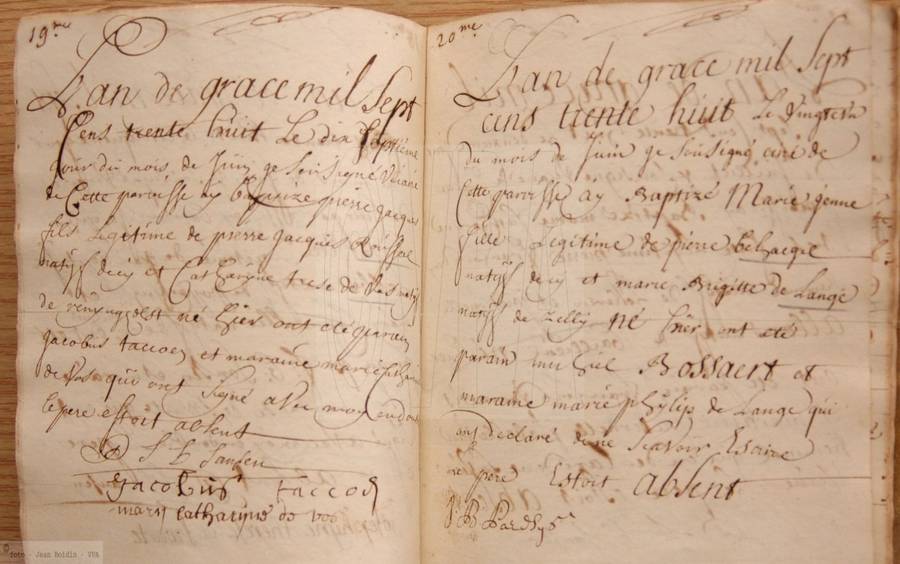 19me
L'an de grace mil Sept
Cens trente huit Le dix Septieme
jour du mois de Juin je Soisigné vicaire
de Cette paroisse ay Baptize pierre Jacques
fils Legitime de pierre Jacques Roussel
natif dicy et Catharine trese de Vos natif
de ne hier ont été parain
Jacobus taccoen et maraine marie Catharine
de Vos qui ont Signé avec moy
le pere estoit absent
Jansen
Jacobus taccoen
marij catharine de vos
20me
L'an de grace mil Sept
cens trente huit Le Vingtesm
du mois de Juin je Sousigné curé de
Cette paroisse ay Baptizé Marie jenne
fille Legitime de pierre Behaegle
natif dicy et marie Brigitte de Lange
natif de Zilly né hier ont eté
parain michiel Bossaert et
maraine marie phylip de Lange qui
ont declaré de ne Scavoir Escrire
le pere Estoit absent
foto - Jean Boidin - VVA